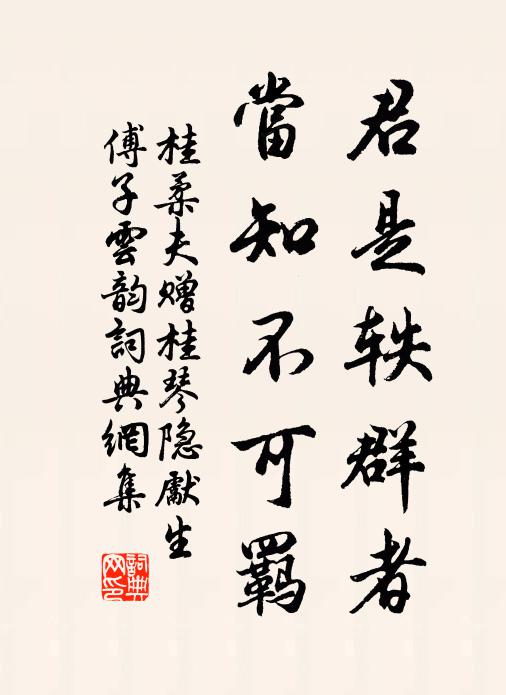 君是轶群者
當知不可羈
桂柔夫赠桂琴隐獻生
傅子雲韵詞典網集
詞典网印